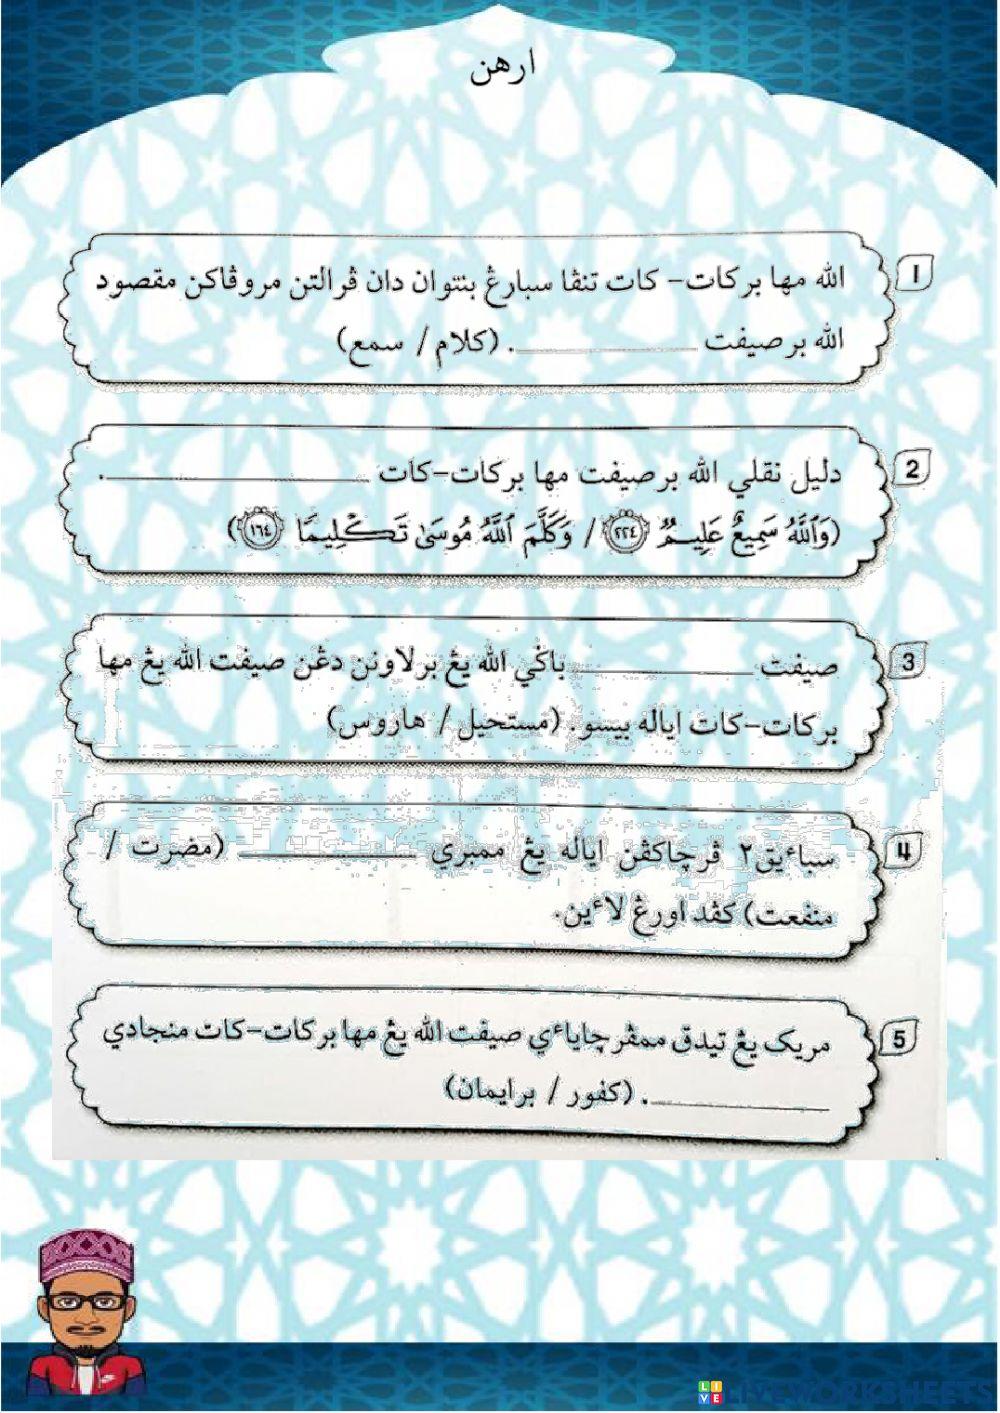 ارهن
1
الله مها بركات- كات تنڤا سبارڠ بنتوان دان ڤرالتن مروڤاكن مقصود
الله برصيفت ــــــــــــــ. (كلام / سمع)
2
دليل نقلي الله برصيفت مها بركات-كات ــــــــــــــ.
(وَٱللَّهُ سَمِيعٌ عَلِيمٌ ٢٢٤ / وَكَلَّمَ ٱللَّهُ مُوسَىٰ تَكْلِيمًا ١٦٤)
3
صيفت ــــــــــــــ باݢي الله يڠ برلاونن دڠن صيفت الله يڠ مها
بركات-كات اياله بيسو. (مستحيل / هاروس)
4
سباءيق٢ ڤرچاكڤن اياله يڠ ممبري ــــــــــــــ (مضرت /
منفعت) كڤد اورڠ لاءين.
5
مريک يڠ تيدق ممڤرچاياءي صيفت الله يڠ مها بركات-كات منجادي
ــــــــــــــ. (كفور / برايمان)
LIVE LIVEWORKSHEETS